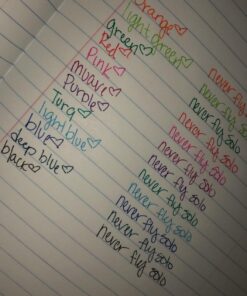 Orange♡ never fly
light green♡ never fly
green♡ never fly solo
Red♡ never fly solo
Pink♡ never fly solo
muave♡ never fly solo
Purple♡ never fly solo
Turq♡ never fly solo
light blue♡ never fly solo
blue♡ never fly solo
deep blue♡ never fly solo
black♡ never fly solo